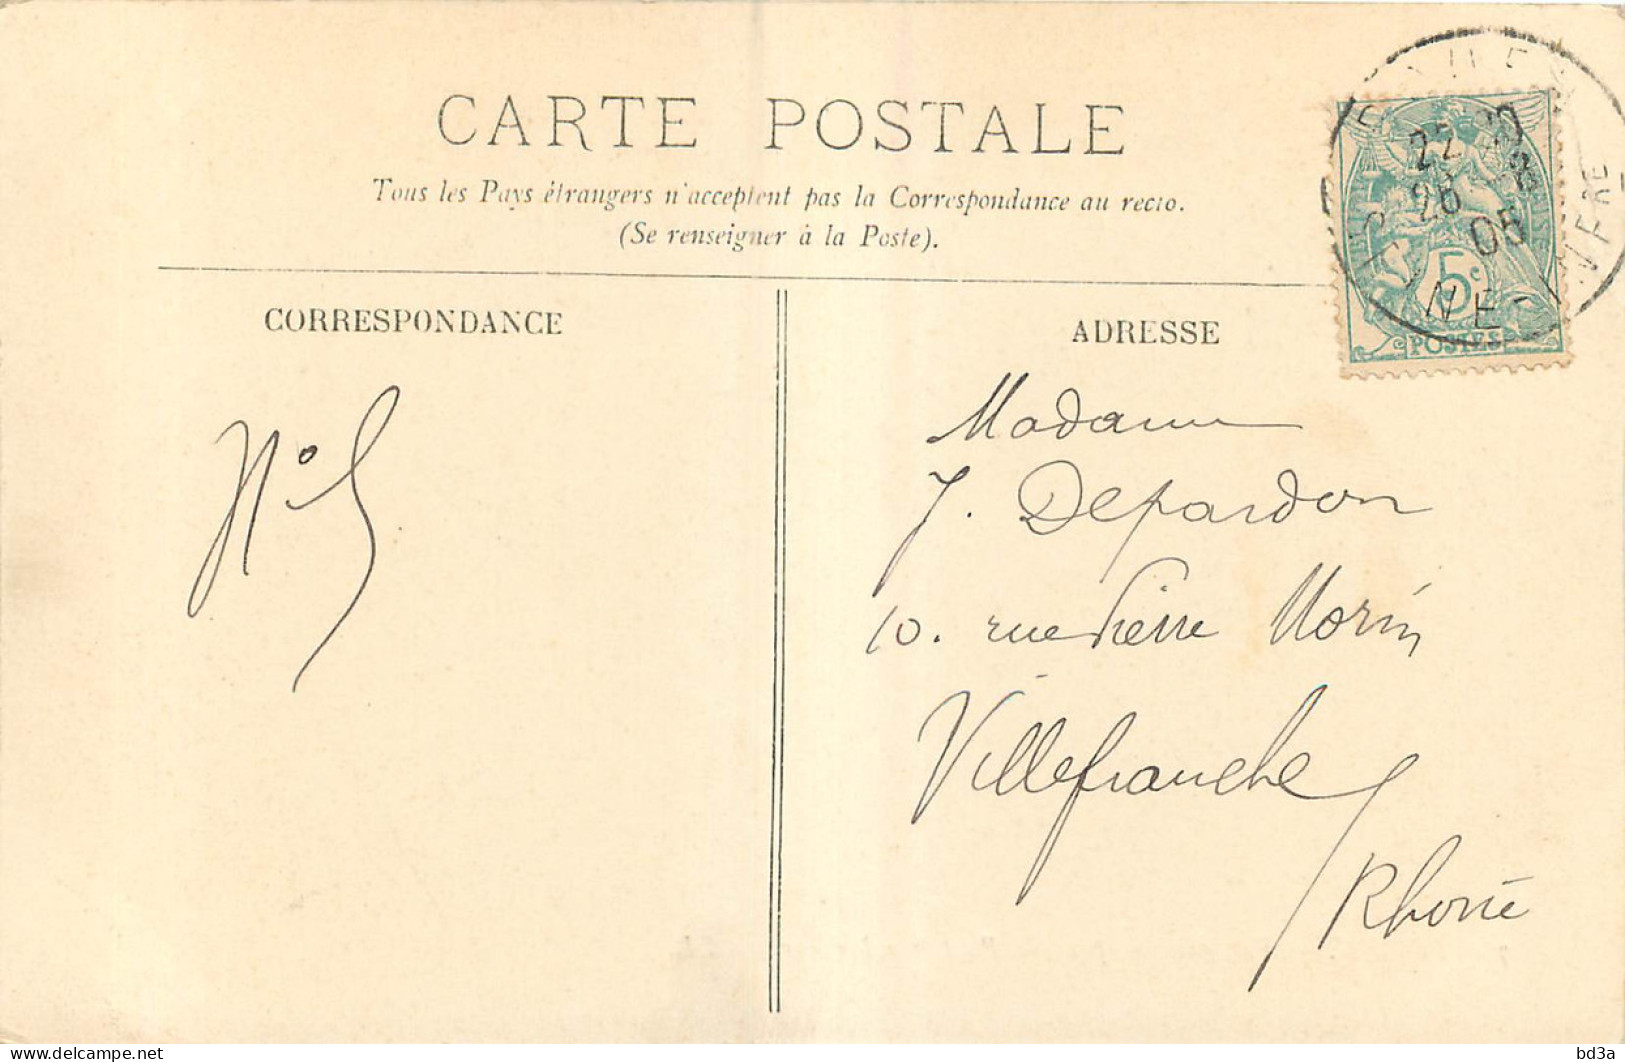 CARTE POSTALE
Tous les Pays étrangers n'acceptent pas la Correspondance au recto.
(Se renseigner à la Poste).
CORRESPONDANCE
N°
ADRESSE
Madame
J. Depardon
10. rue Pierre Morin
Villefranche
Rhône
22
26
05
5c
POSTES
delcampe.net
bd3a